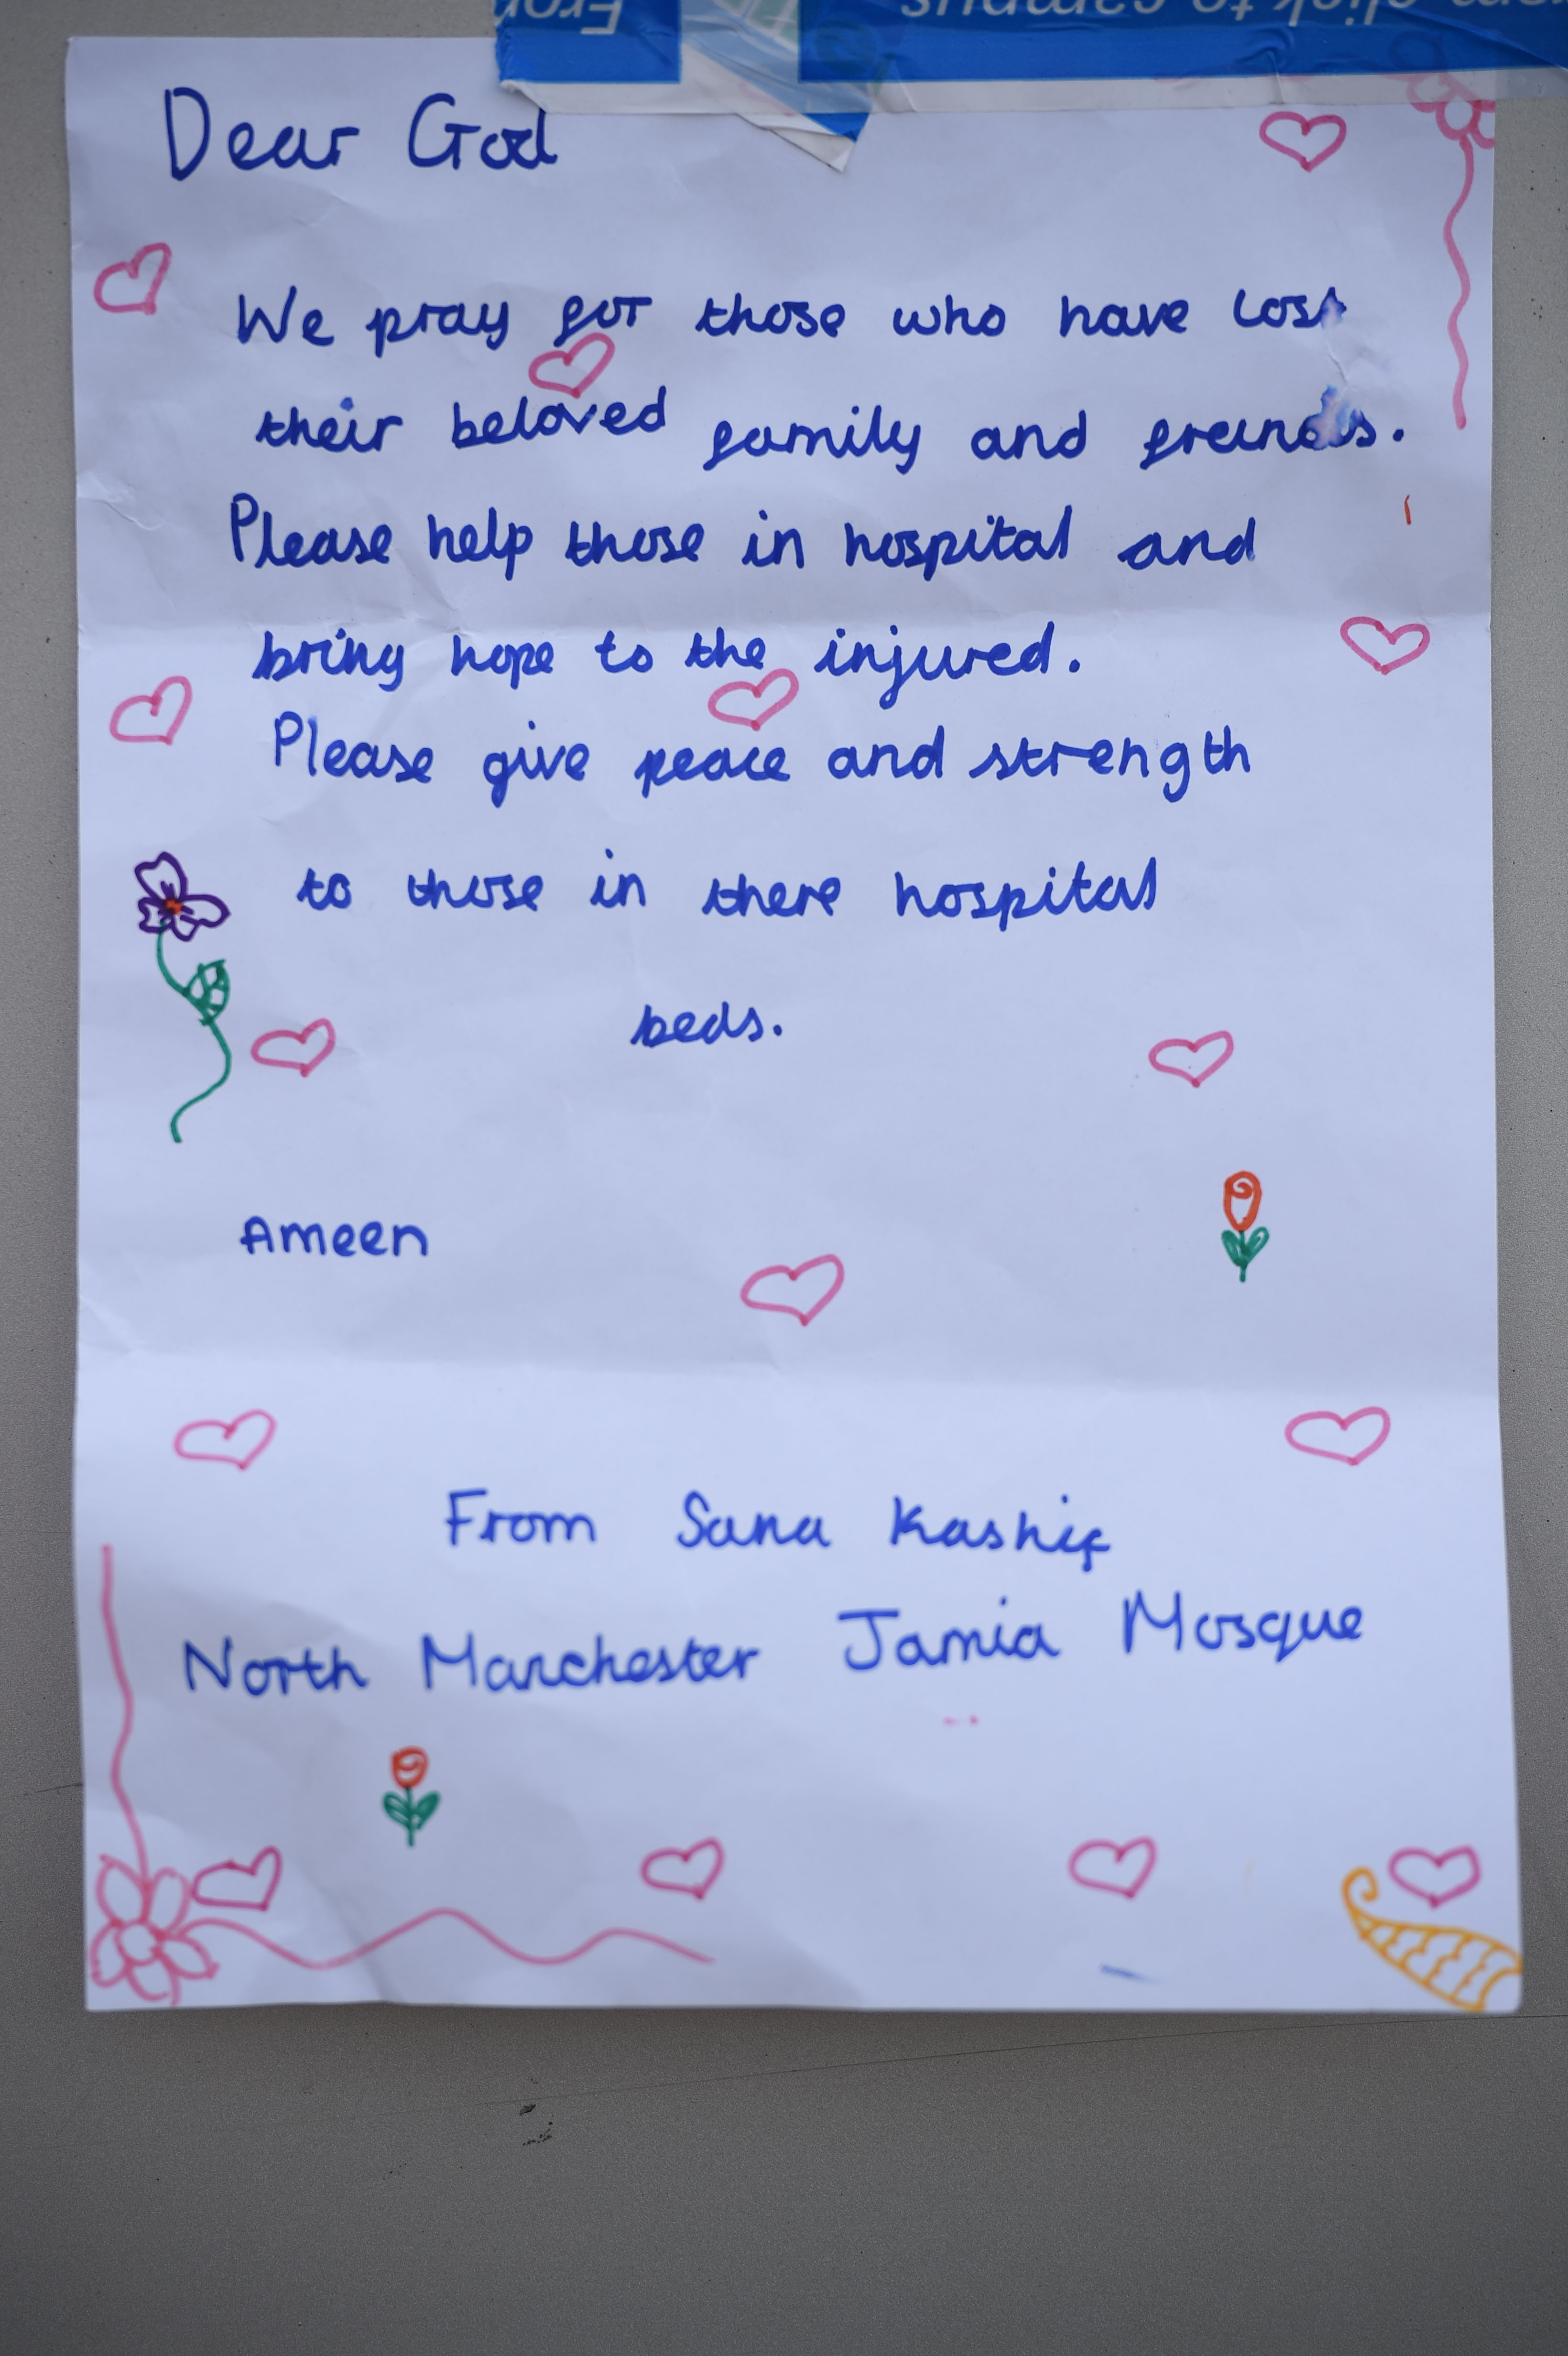 click to campus From
Dear God
We pray for those who have lost
their beloved family and freinds.
Please help those in hospital and
bring hope to the injured.
Please give peace and strength
to those in there hospital
beds.
Ameen
From Sana Kashif
North Manchester Jamia Mosque